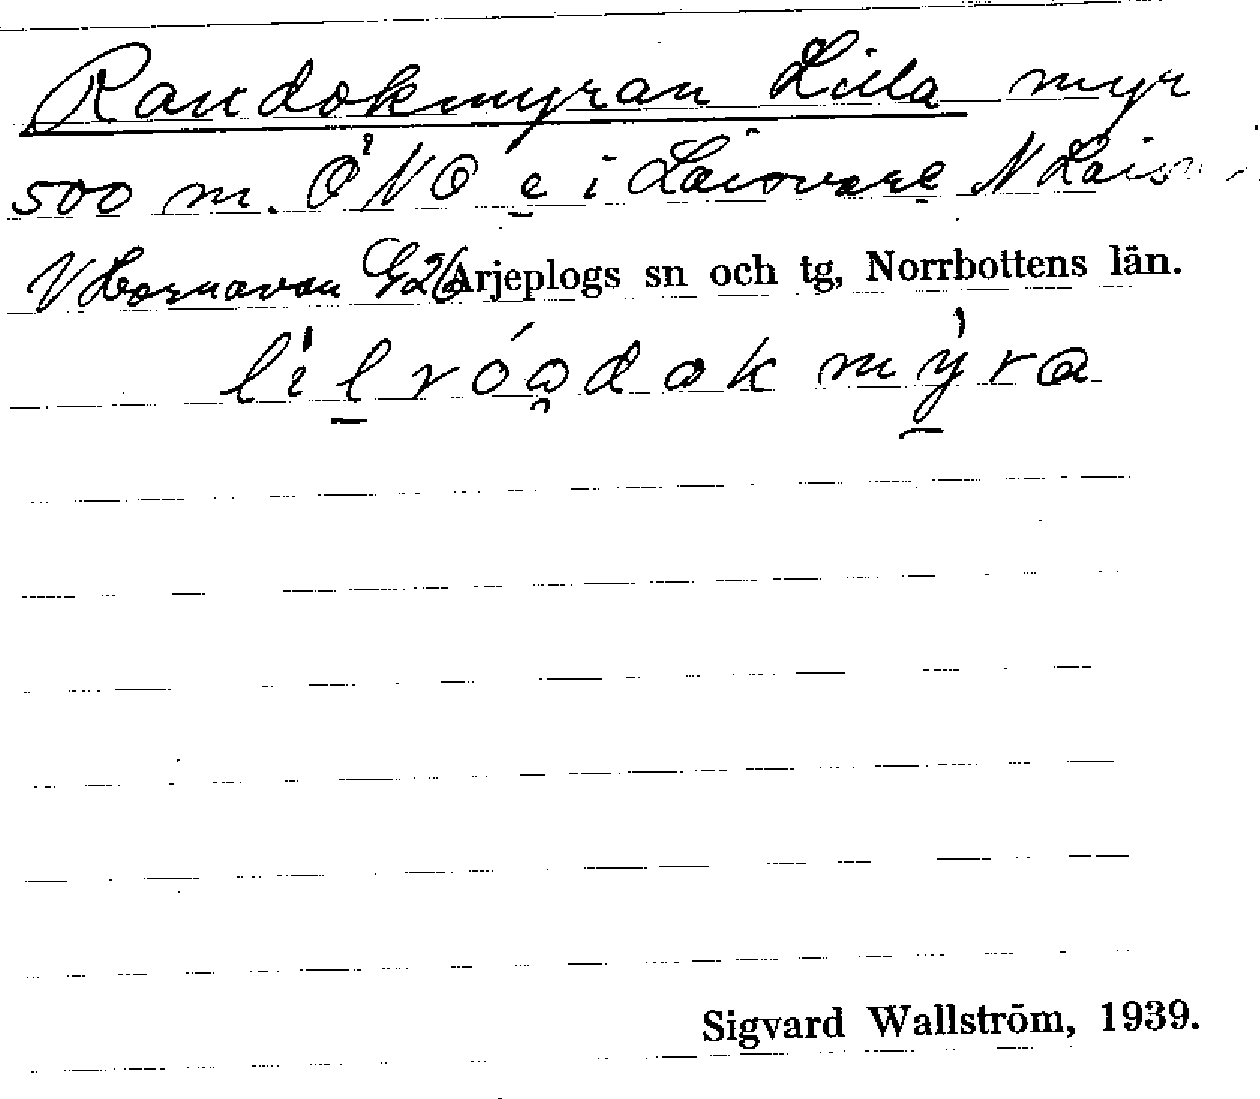 Raudokmyran Lilla myr
500 m. ÖNO e i Laisvare N Lais
V Hornavan G26 Arjeplogs sn och tg, Norrbottens län.
lil róɑdok mýra
Sigvard Wallström, 1939.